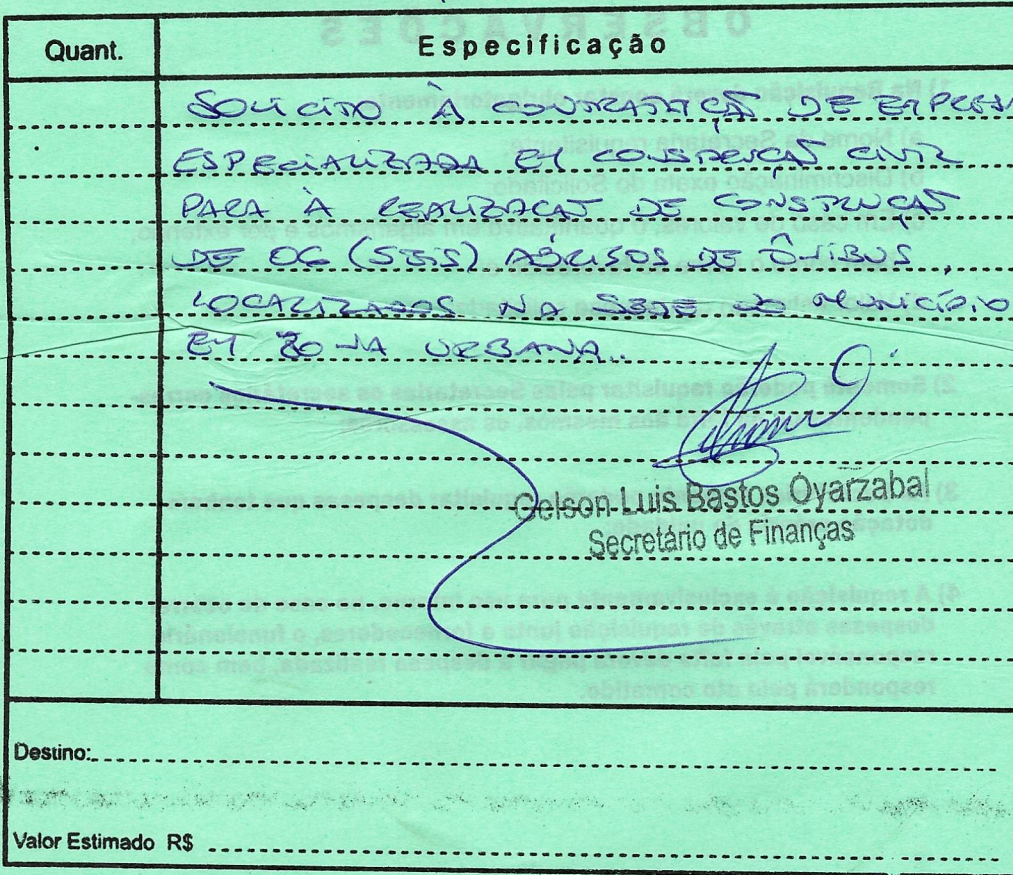 Quant. Especificação
SOLICITO À CONTRATAÇÃO DE EMPRESA
ESPECIALIZADA EM CONSTRUÇÃO CIVIL
PARA À REALIZAÇÃO DE CONSTRUÇÃO
DE 06 (SEIS) ABRIGOS DE ÔNIBUS,
LOCALIZADOS NA SEDE DO MUNICÍPIO
EM ZONA URBANA..
Gelson Luis Bastos Oyarzabal
Secretário de Finanças
Destino:
Valor Estimado R$